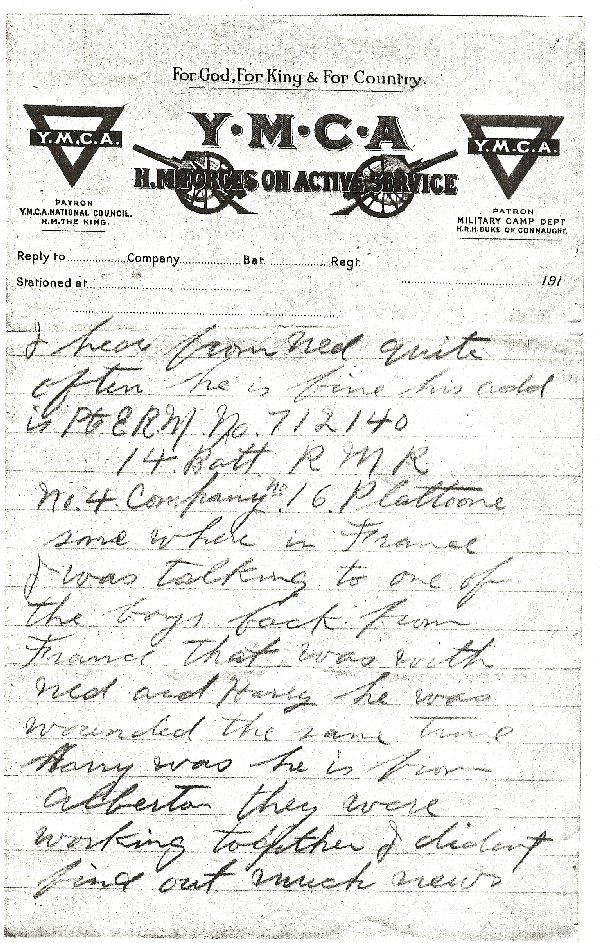 For God, For King & For Country.
Y·M·C·A
H.M. FORCES ON ACTIVE SERVICE
Y.M.C.A.
PATRON
Y.M.C.A. NATIONAL COUNCIL.
H.M. THE KING.
Y.M.C.A.
PATRON
MILITARY CAMP DEPT
H.R.H. DUKE OF CONNAUGHT.
Reply to Company Bat. Regt.
Stationed at 191
I hear from Ned quite
often he is fine his add
is Pte ERM No. 712140
14 Batt R M R
No. 4 Company no 16 Plattoone
some where in France
I was talking to one of
the boys back from
France that was with
Ned and Harry he was
wounded the same time
Harry was he is from
Alberta they were
working together I dident
find out much news